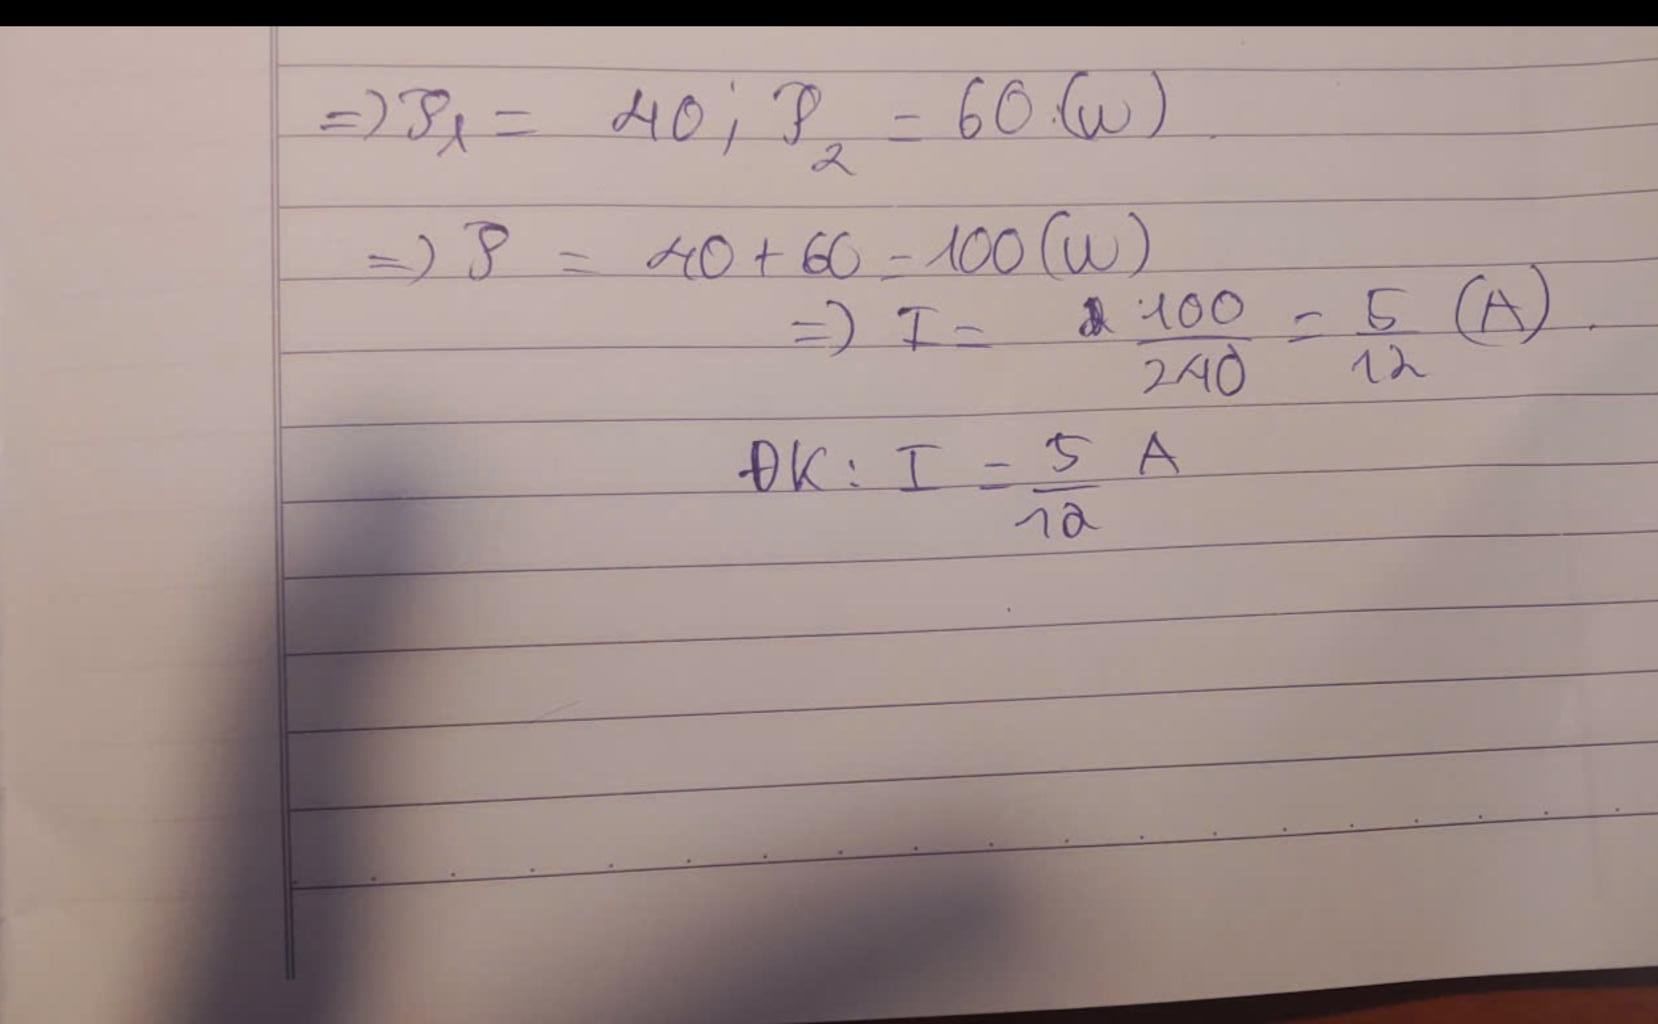 => P₁ = 40 ; P₂ = 60 (W)
=> P = 40 + 60 = 100 (W)
=> I = 100/240 = 5/12 (A).
ĐK : I = 5/12 A